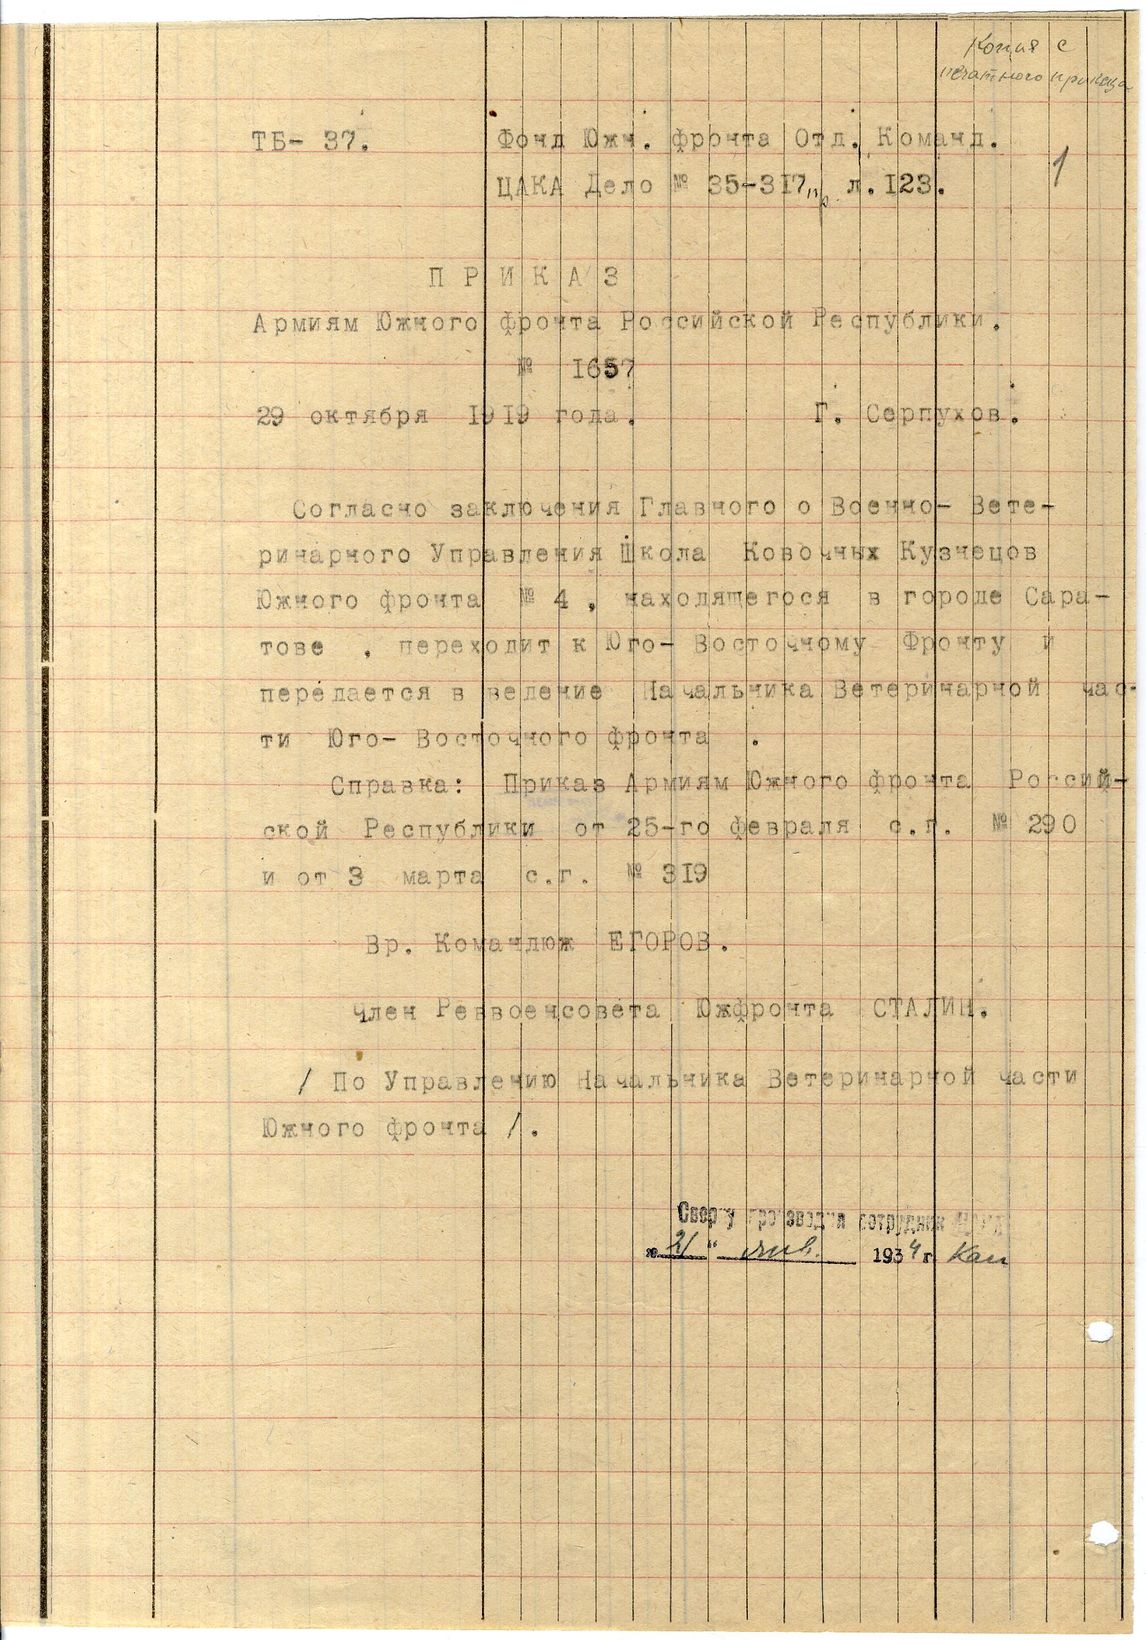 Копия с
печатного приказа
ТБ- 37. Фонд Южн. фронта Отд. Команд.
1
ЦАКА Дело № 35-317 л.123.
ПРИКАЗ
Армиям Южного фронта Российской Республики.
№ 1657
29 октября 1919 года. Г. Серпухов.
Согласно заключения Главного о Военно- Вете-
ринарного Управления Школа Ковочных Кузнецов
Южного фронта № 4 , находящегося в городе Сара-
тове , переходит к Юго- Восточному Фронту и
передается в ведение Начальника Ветеринарной час-
ти Юго- Восточного фронта .
Справка: Приказ Армиям Южного фронта Россий-
ской Республики от 25-го февраля с.г. № 290
и от 3 марта с.г. № 319
Вр. Командюж ЕГОРОВ.
Член Реввоенсовета Южфронта СТАЛИН.
/ По Управлению Начальника Ветеринарной части
Южного фронта /.
Сверку производил сотрудник
„21“ янв. 1934 г.